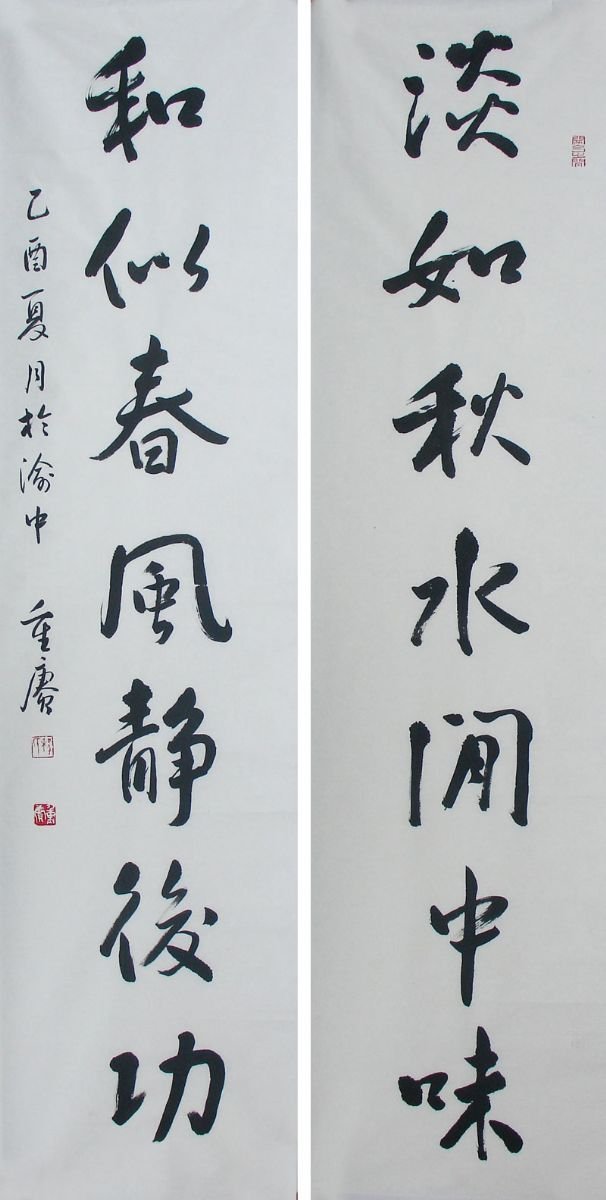 淡如秋水閒中味
和似春風静後功
乙酉夏月於渝中 重賡